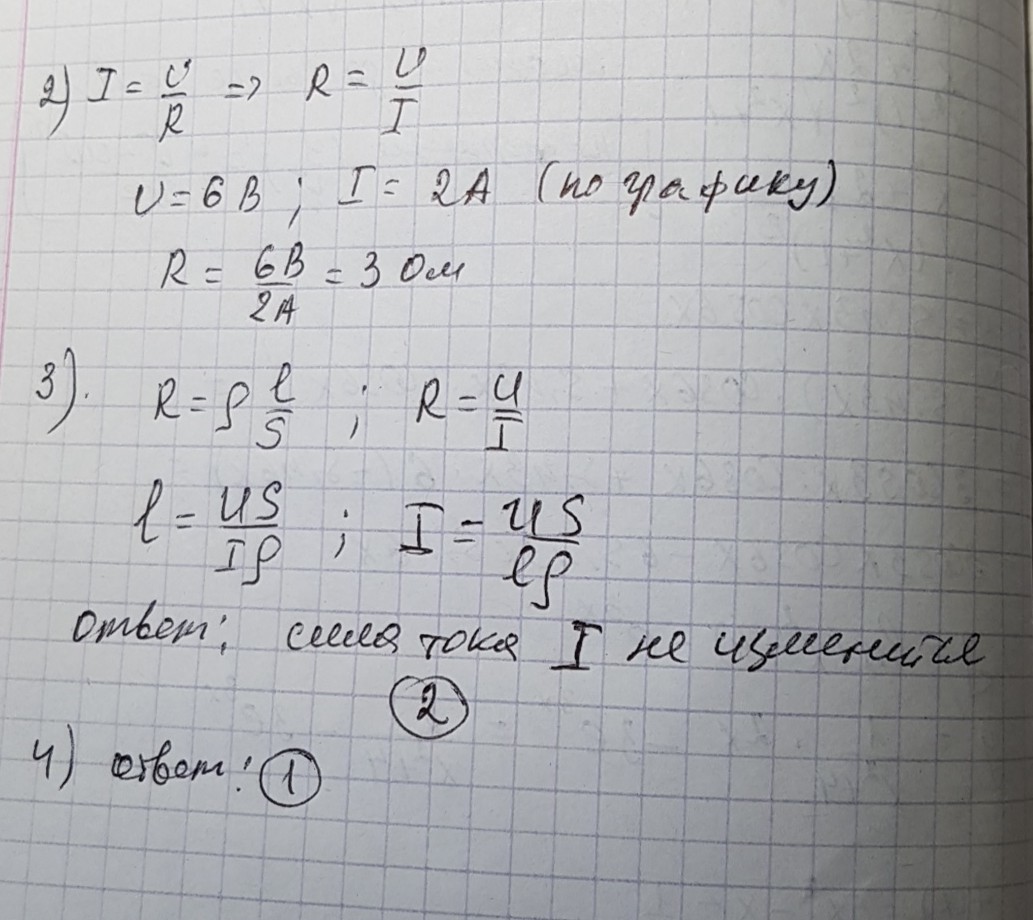 2) I = U/R => R = U/I
U = 6 В ; I = 2А (по графику)
R = 6В/2А = 3 Ом
3). R = ρ l/S ; R = U/I
l = US/Iρ ; I = US/lρ
ответ: сила тока I не изменится
2
4) ответ: 1